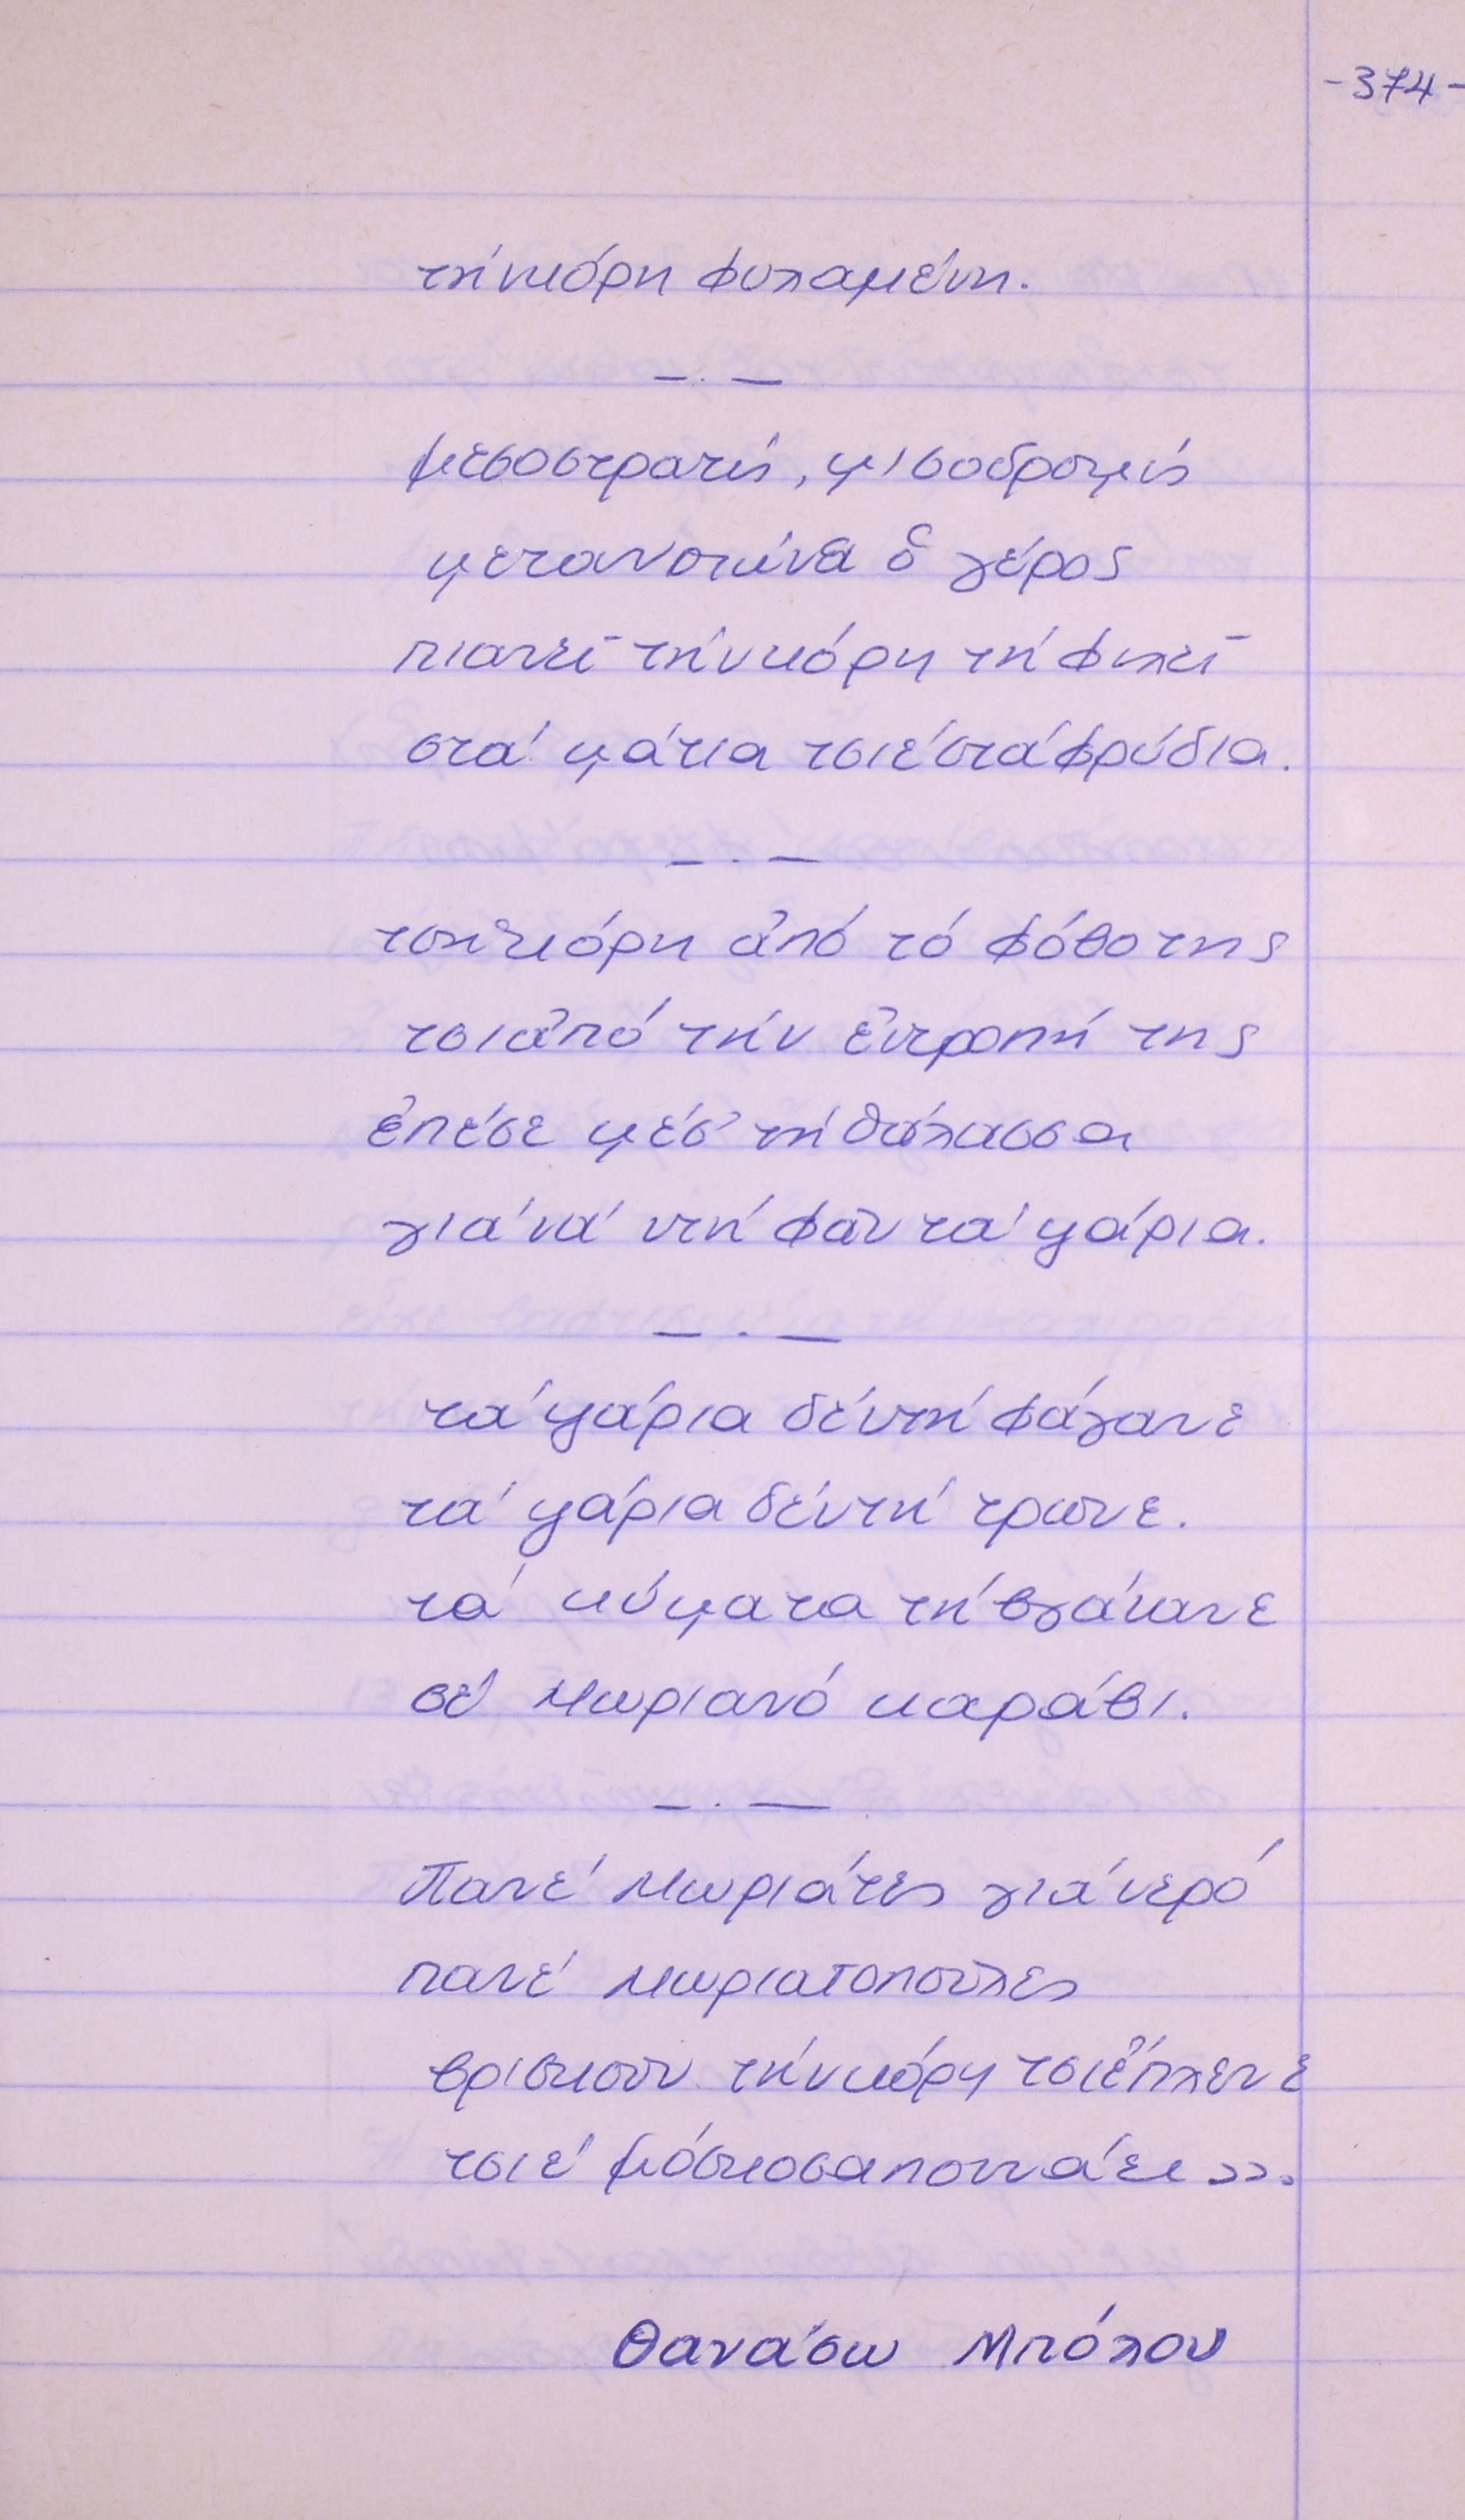 -374-
τήν κόρη φυλαμένη.
— . —
μεσοστρατίς, μισοδρομίς
μετανοιώνει ὁ γέρος
πιανεῖ τήν κόρη τή φιλεῖ
στά μάτια τσιέ στά φρύδια.
— . —
τσή κόρη ἀπό τό φόβο της
τσι ἀπό τήν ἐντροπή της
ἐπέσε μέσ' τή θάλασσα
γιά νά ντή φᾶν τά ψάρια.
— . —
τά ψάρια δέν τή φάγανε
τά ψάρια δέν τή τρώνε.
τά κύματα τή βγάκανε
σέ Μωριανό καράβι.
— . —
Πανέ Μωριάτες γιά νερό
πανέ Μωριατοπούλες
βρίσκουν τήν κόρη τσιἔπλενε
τσιέ μόσκοσαπουνάει».
Θανάσω Μπόλου